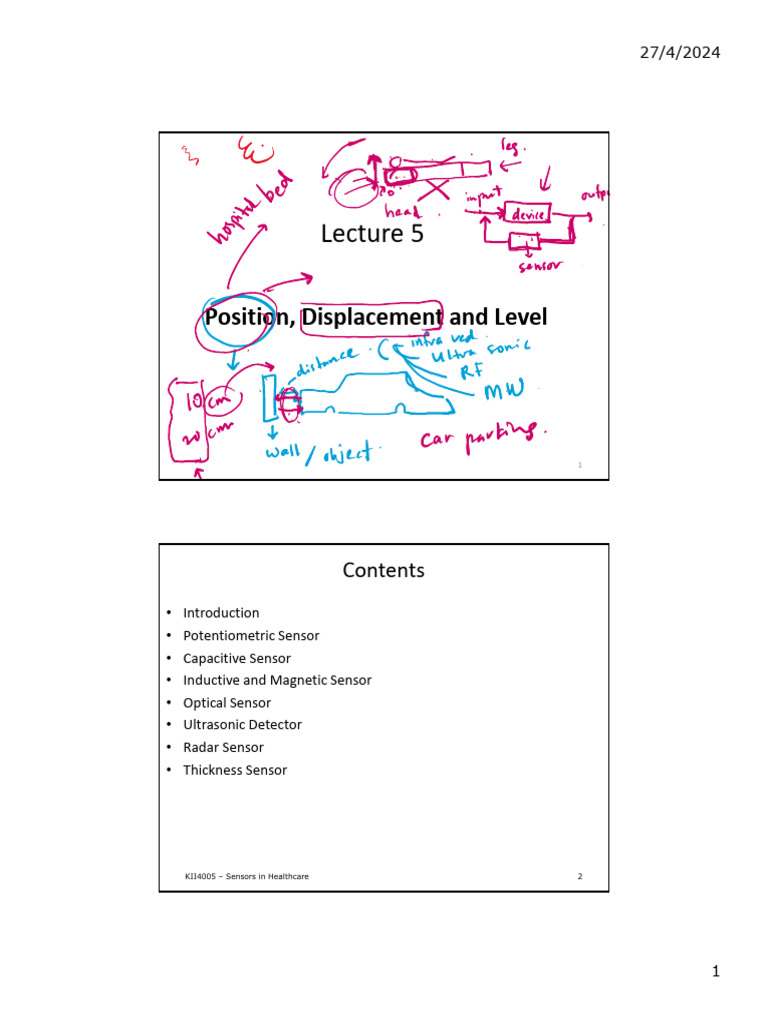 27/4/2024
leg.
input
device
sensor
head.
hospital bed
Lecture 5
Position, Displacement and Level
distance.
infra red.
Ultra sonic
RF
MW
10 cm
20 cm
wall / object.
car parking.
1
Contents
• Introduction
• Potentiometric Sensor
• Capacitive Sensor
• Inductive and Magnetic Sensor
• Optical Sensor
• Ultrasonic Detector
• Radar Sensor
• Thickness Sensor
KII4005 – Sensors in Healthcare
2
1